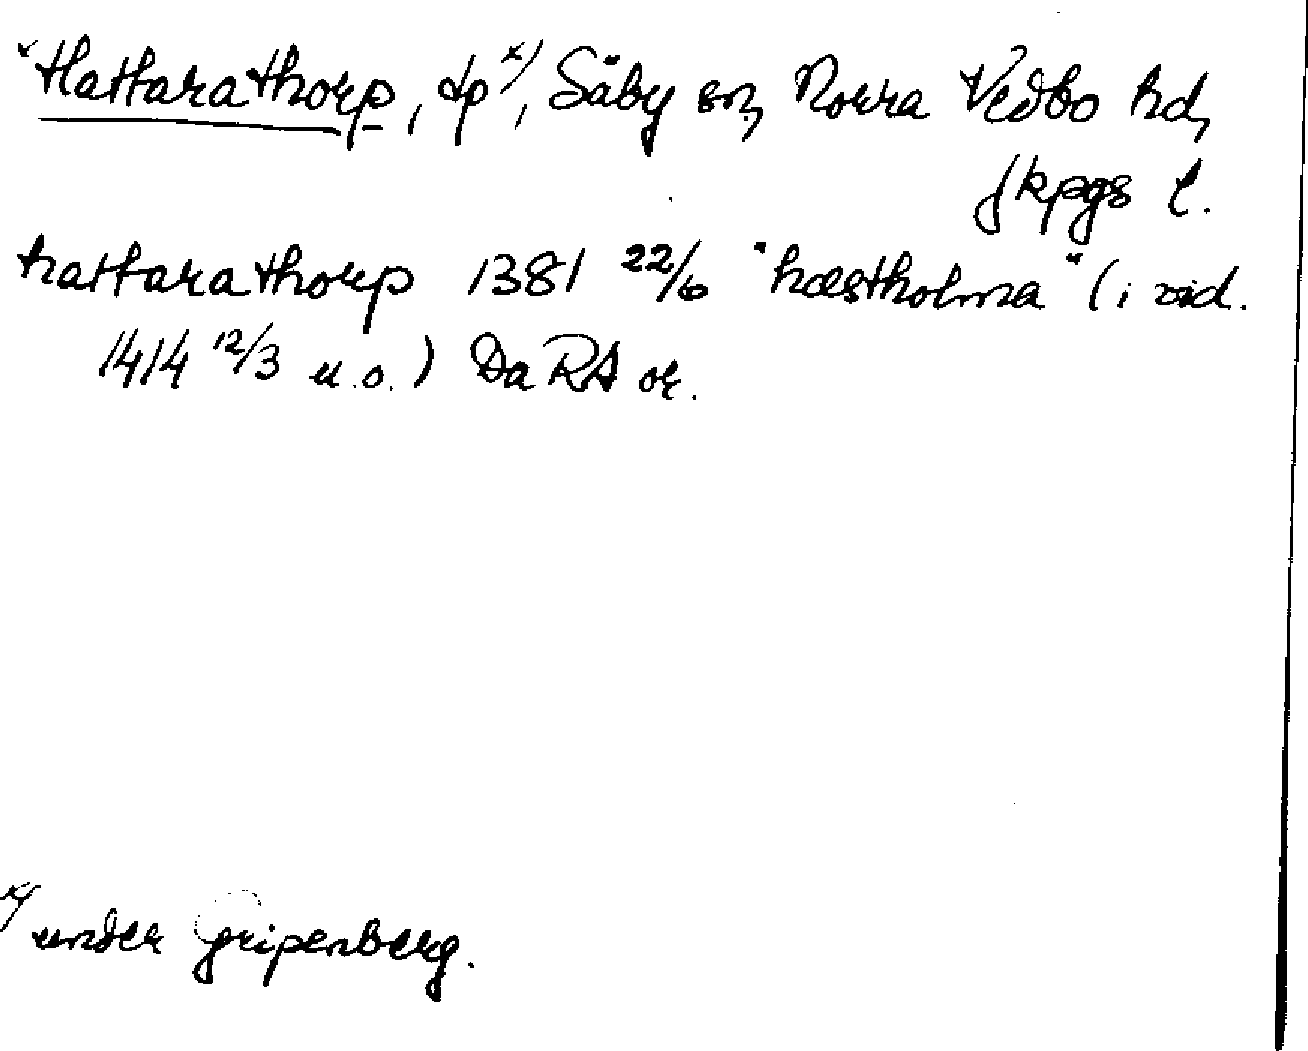 *Hattarathorp, tp x), Säby sn, Norra Vedbo hd,
Jkpgs l.
hattarathorp 1381 22/6 "hæstholma" (i vid.
1414 12/3 u.o.) Da RA or.
x) under Gripenberg.